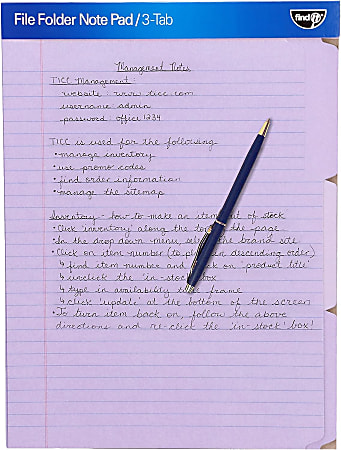 File Folder Note Pad / 3-Tab
find It
Management Notes
TICC Management:
website: www.ticc.com
username: admin
password: office1234
TICC is used for the following
• manage inventory
• use promo codes
• find order information
• manage the sitemap
Inventory - how to make an item out of stock
• Click 'inventory' along the top of the page
• In the drop down menu, select the brand site
• Click on item number (to place in descending order)
↳ find item number and click on 'product title'
↳ unclick the 'in-stock' box
↳ type in availability time frame
↳ click 'update' at the bottom of the screen
• To turn item back on, follow the above
directions and re-click the 'in-stock' box!